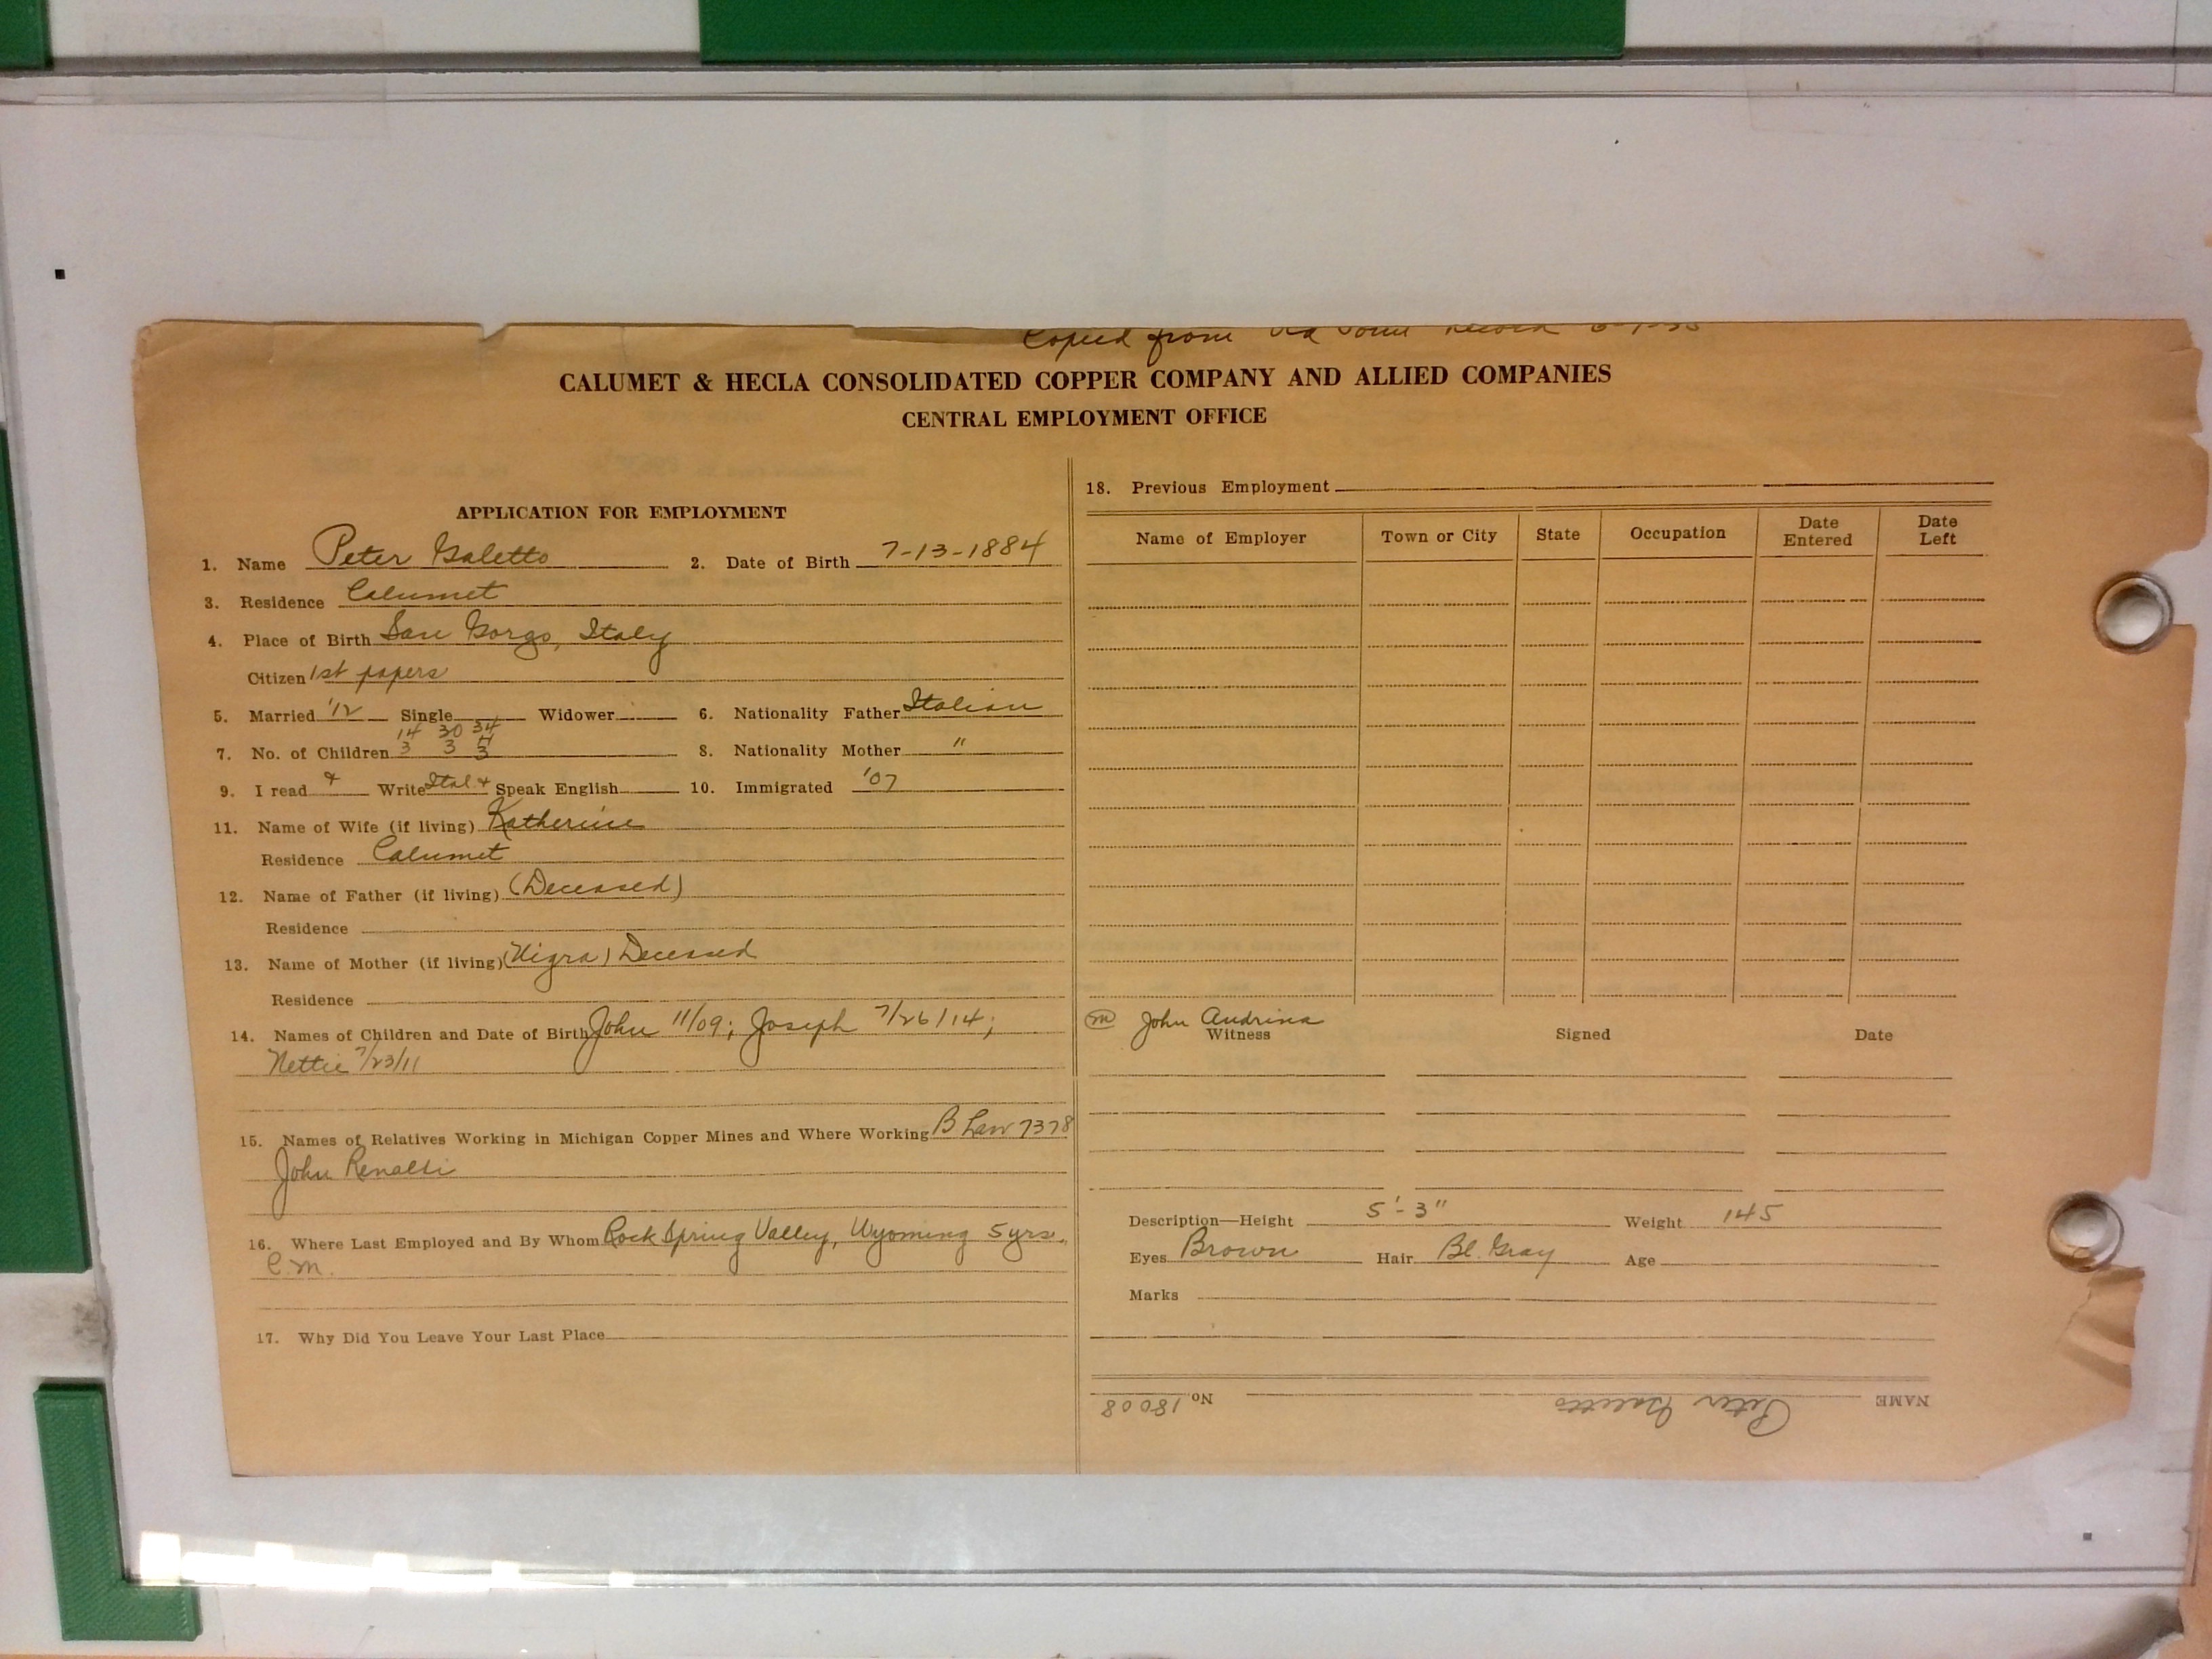 Copied from Old Form Record
CALUMET & HECLA CONSOLIDATED COPPER COMPANY AND ALLIED COMPANIES
CENTRAL EMPLOYMENT OFFICE
APPLICATION FOR EMPLOYMENT
1. Name Peter Galetto 2. Date of Birth 7-13-1884
3. Residence Calumet
4. Place of Birth San Gorgo, Italy
Citizen 1st papers
5. Married '12 Single Widower 6. Nationality Father Italian
14 30 34
7. No. of Children 3 3 3 8. Nationality Mother "
9. I read & Write Ital. & Speak English 10. Immigrated '07
11. Name of Wife (if living) Katherine
Residence Calumet
12. Name of Father (if living) (Deceased)
Residence
13. Name of Mother (if living) (Nigra) Deceased
Residence
14. Names of Children and Date of Birth John 11/09; Joseph 7/26/14;
Nettie 7/23/11
15. Names of Relatives Working in Michigan Copper Mines and Where Working B Law 7378
John
16. Where Last Employed and By Whom Rock Spring Valley, Wyoming 5 yrs.
C.M.
17. Why Did You Leave Your Last Place
18. Previous Employment
Name of Employer Town or City State Occupation Date Entered Date Left
John Andrina
Witness Signed Date
Description—Height 5'-3" Weight 145
Eyes Brown Hair Bl. Gray Age
Marks
NAME Peter Galetto No 18008